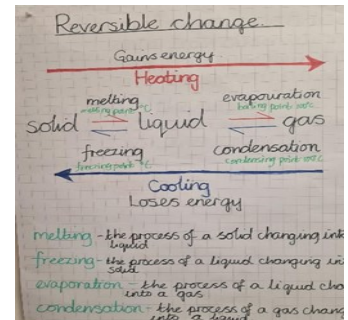 Reversible change
Gains energy
Heating
melting evapouration
melting point °C boiling point 100°C
solid liquid gas
freezing condensation
freezing point °C condensing point 100°C
Cooling
Loses energy
melting - the process of a solid changing into
liquid
freezing - the process of a liquid changing in
solid
evaporation - the process of a liquid cha
into a gas
condensation - the process of a gas chang
into a liquid